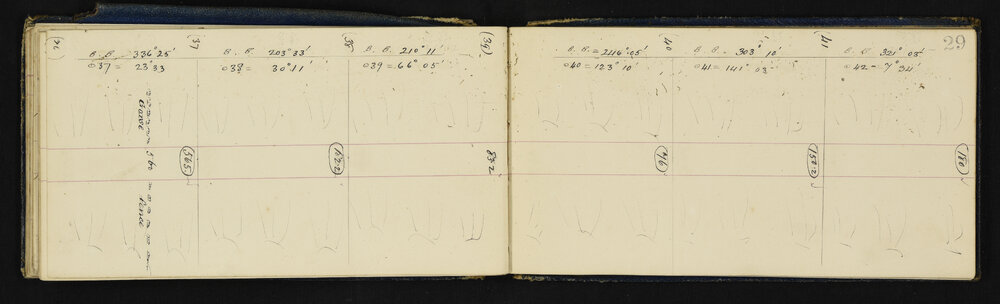 (36)
B. B. - 336° 25'
37 = 23° 33
37
B. B. 203° 33'
38 = 30° 11'
38
B. B. 210° 11'
39 = 66° 05'
(39)
B. B. = 246° 05'
40 = 123° 10'
40
B. B. - 303° 10'
41 = 141° 03'
41
321° 05'
42 - 7° 34'
29
fence
565
422
852
746
1582
180